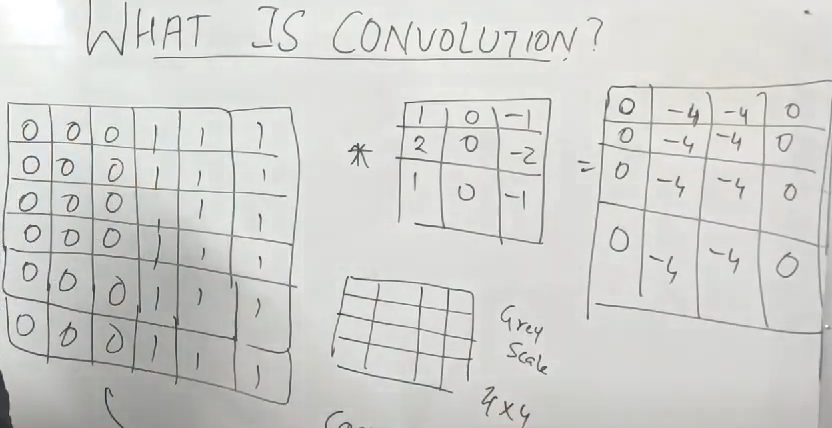 WHAT IS CONVOLUTION?
0 0 0 1 1 1
0 0 0 1 1 1
0 0 0 1 1
0 0 0 1 1 1
0 0 0 1 1 1
0 0 0 1 1 1
*
1 0 -1
2 0 -2
1 0 -1
=
0 -4 -4 0
0 -4 -4 0
0 -4 -4 0
0 -4 -4 0
Grey
Scale
4x4